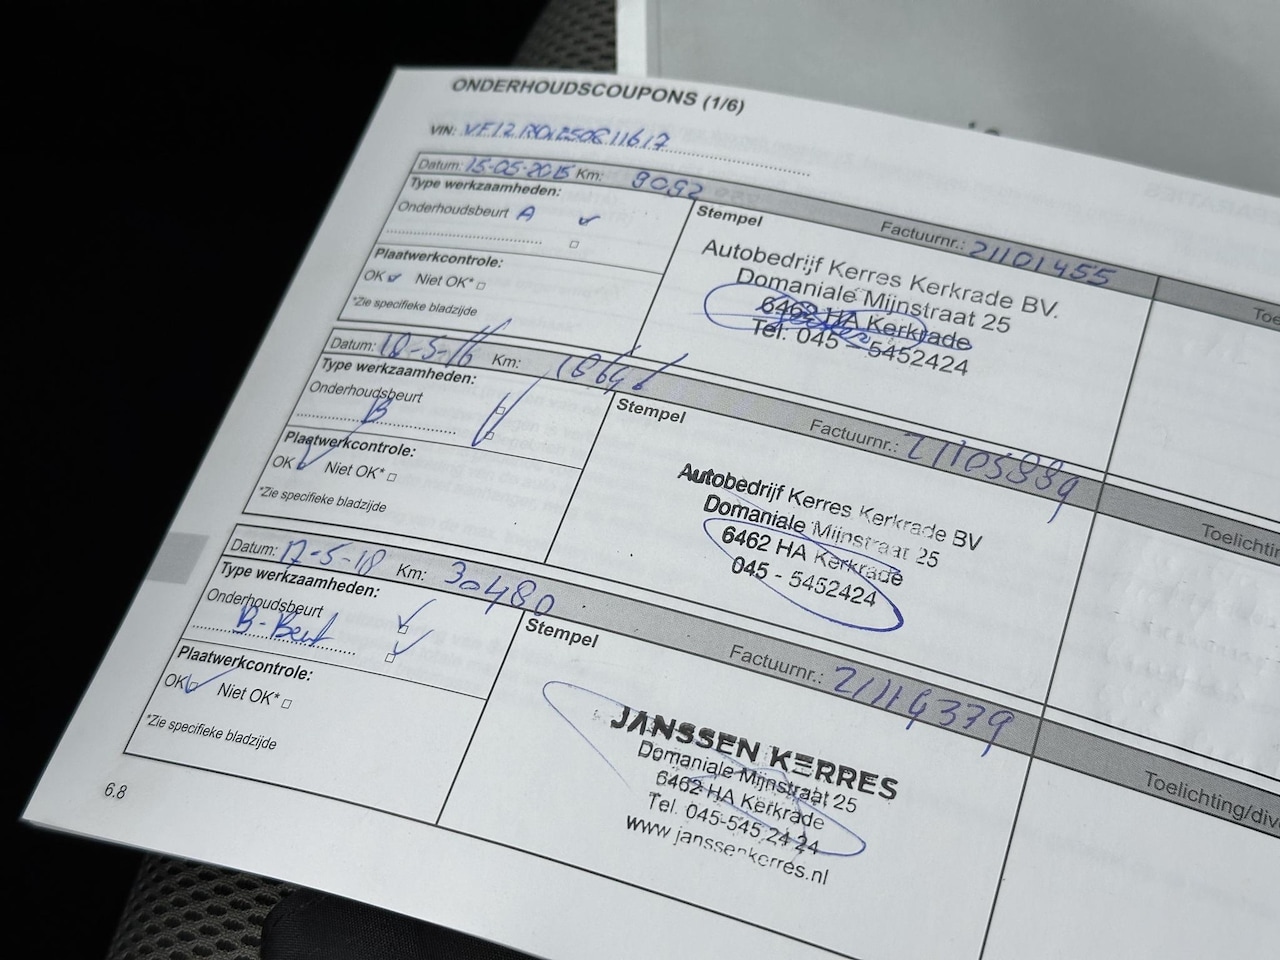 ONDERHOUDSCOUPONS (1/6)
VIN:
Datum: 15-05-2015 Km: 9092
Type werkzaamheden:
Onderhoudsbeurt A
Plaatwerkcontrole:
OK Niet OK*
*Zie specifieke bladzijde
Stempel
Factuurnr.: 21101455
Autobedrijf Kerres Kerkrade BV.
Domaniale Mijnstraat 25
6462 HA Kerkrade
Tel: 045 - 5452424
Datum: 18-5-16 Km:
Type werkzaamheden:
Onderhoudsbeurt
B
Plaatwerkcontrole:
OK Niet OK*
*Zie specifieke bladzijde
Stempel
Factuurnr.:
Autobedrijf Kerres Kerkrade BV
Domaniale Mijnstraat 25
6462 HA Kerkrade
045 - 5452424
Datum: 17-5-18 Km: 30480
Type werkzaamheden:
Onderhoudsbeurt
B-Beurt
Plaatwerkcontrole:
OK Niet OK*
*Zie specifieke bladzijde
Stempel
Factuurnr.: 21114339
JANSSEN KERRES
Domaniale Mijnstraat 25
6462 HA Kerkrade
Tel. 045-545 24 24
www.janssenkerres.nl
6.8